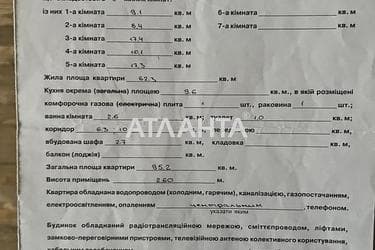 із них 1-а кімната 9.1 кв. м 6-а кімната кв. м
2-а кімната 8.4 кв. м 7-а кімната кв. м
3-я кімната 17.4 кв. м
4-а кімната 10.1 кв. м
5-а кімната 17.3 кв. м
Жила площа квартири 62.3 кв. м
Кухня окрема (загальна) площею 9.6 кв. м., в якій розміщені
комфорочна газова (електрична) плита 1 шт., раковина 1 шт.;
ванна кімната 2.6 кв. м; туалет 1.0 кв. м;
коридор 6.3 кв. м;
вбудована шафа 2.7 кв. м; кладовка кв. м;
балкон (лоджія) кв. м
АТЛАНТА
Загальна площа квартири 95.2 кв. м
Висота приміщень 2.60 м
Квартира обладнана водопроводом (холодним, гарячим), каналізацією, газопостачанням,
електроосвітленням, опаленням центральним, телефоном.
указати яким
Будинок обладнаний радіотрансляційною мережою, сміттєпроводом, ліфтами,
замково-переговорними пристроями, телевізійною антеною колективного користування,